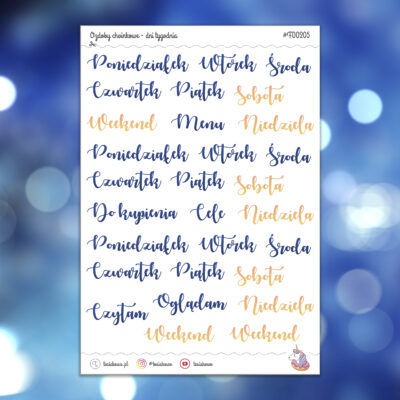 Ozdoby choinkowe - dni tygodnia #FD0205
Poniedziałek Wtorek Środa
Czwartek Piątek Sobota
Weekend Menu Niedziela
Poniedziałek Wtorek Środa
Czwartek Piątek Sobota
Do kupienia Cele Niedziela
Poniedziałek Wtorek Środa
Czwartek Piątek Sobota
Czytam Oglądam Niedziela
Weekend Weekend